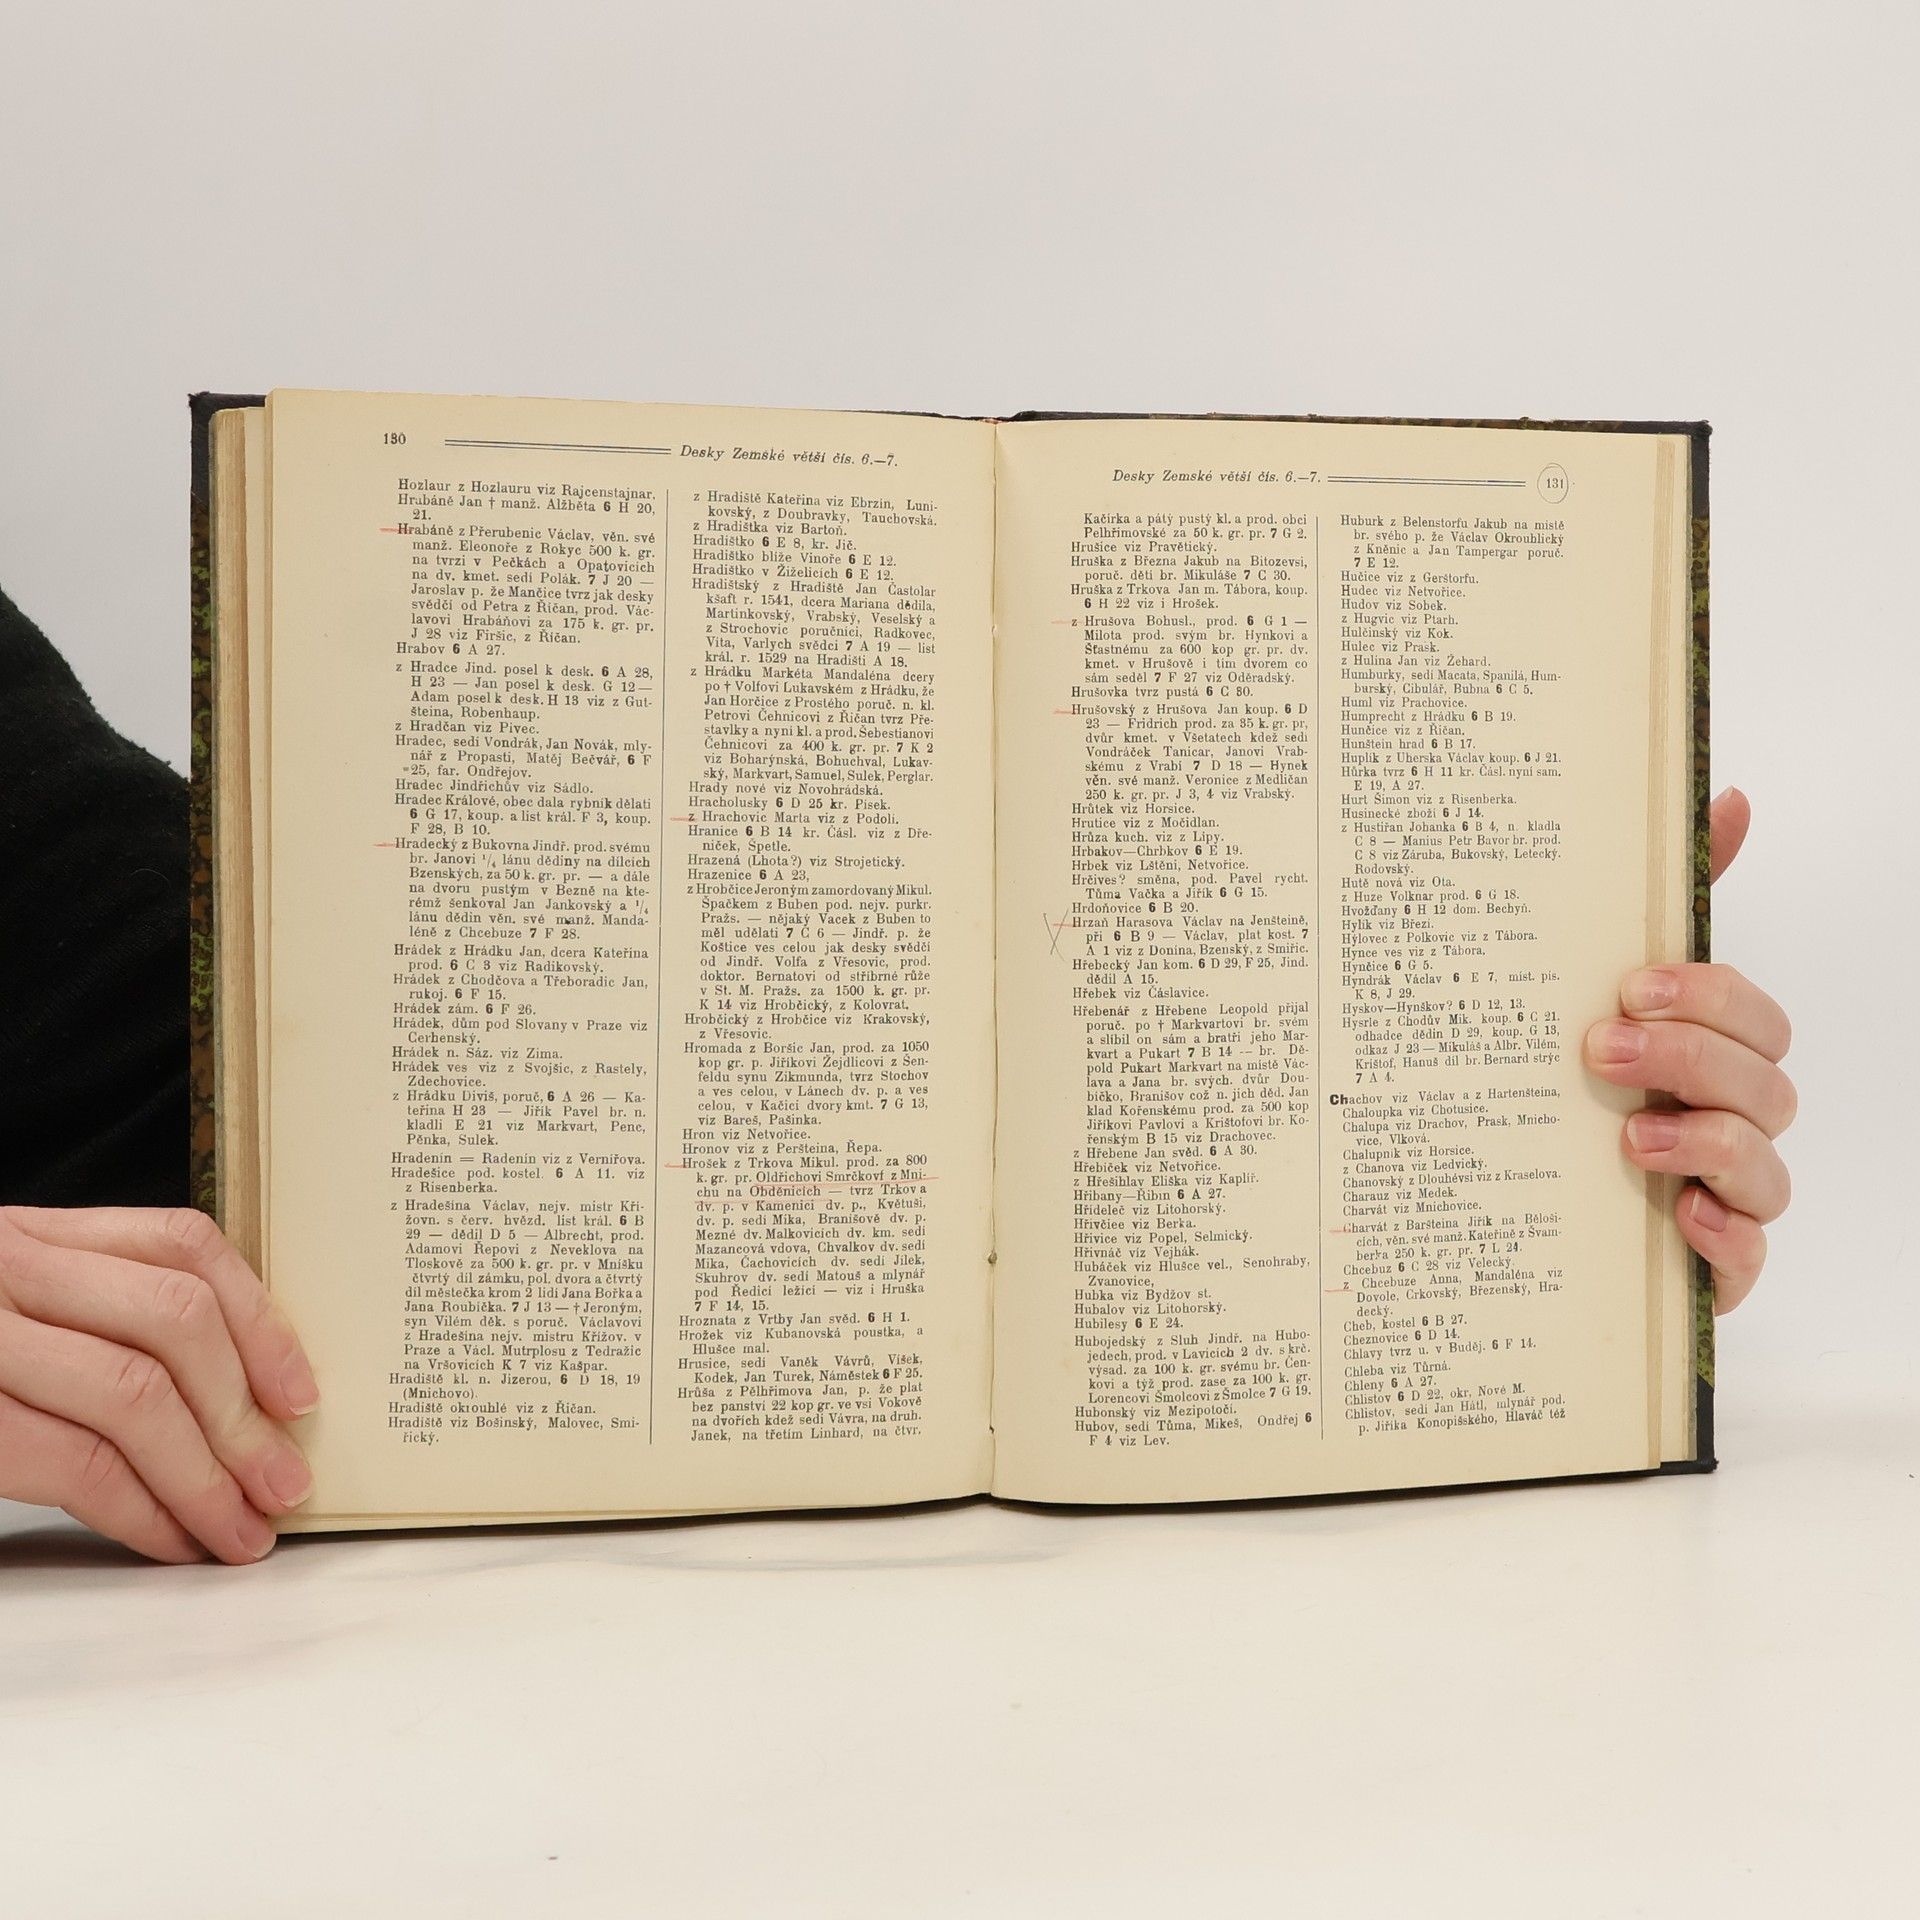 130
Desky Zemské větší čís. 6.—7.
Hozlaur z Hozlauru viz Rajcenstajnar,
Hrabáně Jan † manž. Alžběta 6 H 20,
21.
Hrabáně z Přerubenic Václav, věn. své
manž. Eleonoře z Rokyc 500 k. gr.
na tvrzi v Pečkách a Opatovicích
na dv. kmet. sedí Polák. 7 J 20 —
Jaroslav p. že Mančice tvrz jak desky
svědčí od Petra z Říčan, prod. Vác-
lavovi Hrabáňovi za 175 k. gr. pr.
J 28 viz Firšic, z Říčan.
Hrabov 6 A 27.
z Hradce Jind. posel k desk. 6 A 28,
H 23 — Jan posel k desk. G 12 —
Adam posel k desk. H 13 viz z Gut-
šteina, Robenhaup.
z Hradčan viz Pivec.
Hradec, sedí Vondrák, Jan Novák, mly-
nář z Propasti, Matěj Bečvář, 6 F
25, far. Ondřejov.
Hradec Jindřichův viz Sádlo.
Hradec Králové, obec dala rybník dělati
6 G 17, koup. a list král. F 3, koup.
F 28, B 10.
Hradecký z Bukovna Jindř. prod. svému
br. Janovi ¹/₄ lánu dědiny na dílcích
Bzenských, za 50 k. gr. pr. — a dále
na dvoru pustým v Bezně na kte-
rémž šenkoval Jan Jankovský a ¹/₄
lánu dědin věn. své manž. Manda-
léně z Chcebuze 7 F 28.
Hrádek z Hrádku Jan, dcera Kateřina
prod. 6 C 3 viz Radikovský.
Hrádek z Chodčova a Třeboradic Jan,
rukoj. 6 F 15.
Hrádek zám. 6 F 26.
Hrádek, dům pod Slovany v Praze viz
Cerhenský.
Hrádek n. Sáz. viz Zima.
Hrádek ves viz z Svojšic, z Rastely,
Zdechovice.
z Hrádku Diviš, poruč. 6 A 26 — Ka-
teřina H 23 — Jiřík Pavel br. n.
kladli E 21 viz Markvart, Penc,
Pěnka, Sulek.
Hradenín = Radenín viz z Vernířova.
Hradešice pod. kostel. 6 A 11. viz
z Risenberka.
z Hradešína Václav, nejv. mistr Kři-
žovn. s červ. hvězd. list král. 6 B
29 — dědil D 5 — Albrecht, prod.
Adamovi Řepovi z Neveklova na
Tloskově za 500 k. gr. pr. v Mníšku
čtvrtý díl zámku, pol. dvora a čtvrtý
díl městečka krom 2 lidí Jana Bořka a
Jana Roubíčka. 7 J 13 — † Jeroným,
syn Vilém děk. s poruč. Václavovi
z Hradešína nejv. mistru Křížov. v
Praze a Václ. Mutrplosu z Tedražic
na Vršovicích K 7 viz Kašpar.
Hradiště kl. n. Jizerou, 6 D 18, 19
(Mnichovo).
Hradiště okrouhlé viz z Říčan.
Hradiště viz Bošinský, Malovec, Smi-
řický.
z Hradiště Kateřina viz Ebrzín, Luni-
kovský, z Doubravky, Tauchovská.
z Hradištka viz Bartoň.
Hradištko 6 E 8, kr. Jič.
Hradištko blíže Vinoře 6 E 12.
Hradištko v Žiželicích 6 E 12.
Hradištský z Hradiště Jan Častolar
kšaft r. 1541, dcera Mariana dědila,
Martinkovský, Vrabský, Veselský a
z Strochovic poručníci, Radkovec,
Vita, Varlych svědci 7 A 19 — list
král. r. 1529 na Hradišti A 18.
z Hrádku Markéta Mandaléna dcery
po † Volfovi Lukavském z Hrádku, že
Jan Horčice z Prostého poruč. n. kl.
Petrovi Čehnicovi z Říčan tvrz Pře-
stavlky a nyní kl. a prod. Šebestianovi
Čehnicovi za 400 k. gr. pr. 7 K 2
viz Boharýnská, Bohuchval, Lukav-
ský, Markvart, Samuel, Sulek, Perglar.
Hrady nové viz Novohrádská.
Hracholusky 6 D 25 kr. Písek.
z Hrachovic Marta viz z Podolí.
Hranice 6 B 14 kr. Čásl. viz z Dře-
niček, Špetle.
Hrazená (Lhota?) viz Strojetický.
Hrazenice 6 A 23,
z Hrobčice Jeroným zamordovaný Mikul.
Špačkem z Buben pod. nejv. purkr.
Pražs. — nějaký Vacek z Buben to
měl udělati 7 C 6 — Jindř. p. že
Koštice ves celou jak desky svědčí
od Jindř. Volfa z Vřesovic, prod.
doktor. Bernatovi od stříbrné růže
v St. M. Pražs. za 1500 k. gr. pr.
K 14 viz Hrobčický, z Kolovrat.
Hrobčický z Hrobčice viz Krakovský,
z Vřesovic.
Hromada z Boršic Jan, prod. za 1050
kop gr. p. Jiříkovi Žejdlicovi z Šen-
feldu synu Zikmunda, tvrz Stochov
a ves celou, v Lánech dv. p. a ves
celou, v Kačici dvory kmt. 7 G 13,
viz Bareš, Pašinka.
Hron viz Netvořice.
Hronov viz z Peršteina, Řepa.
Hrošek z Trkova Mikul. prod. za 800
k. gr. pr. Oldřichovi Smrčkovi z Mni-
chu na Obděnicích — tvrz Trkov a
dv. p. v Kamenici dv. p., Květuši,
dv. p. sedí Míka, Branišově dv. p.
Mezné dv. Malkovicích dv. km. sedí
Mazancová vdova, Chvalkov dv. sedí
Míka, Čachovicích dv. sedí Jílek,
Skuhrov dv. sedí Matouš a mlynář
pod Ředicí ležící — viz i Hruška
7 F 14, 15.
Hroznata z Vrtby Jan svěd. 6 H 1.
Hrožek viz Kubanovská poustka, a
Hlušce mal.
Hrusice, sedí Vaněk Vávrů, Víšek,
Kodek, Jan Turek, Náměstek 6 F 25.
Hrůša z Pělhřimova Jan, p. že plat
bez panství 22 kop gr. ve vsi Vokově
na dvořích kdež sedí Vávra, na druh.
Janek, na třetím Linhard, na čtvr.
Desky Zemské větší čís. 6.—7.
131
Kačírka a pátý pustý kl. a prod. obci
Pelhřimovské za 50 k. gr. pr. 7 G 2.
Hrušice viz Pravětický.
Hruška z Března Jakub na Bitozevsi,
poruč. dětí br. Mikuláše 7 C 30.
Hruška z Trkova Jan m. Tábora, koup.
6 H 22 viz i Hrošek.
z Hrušova Bohusl., prod. 6 G 1 —
Milota prod. svým br. Hynkovi a
Šťastnému za 600 kop gr. pr. dv.
kmet. v Hrušově i tím dvorem co
sám seděl 7 F 27 viz Oděradský.
Hrušovka tvrz pustá 6 C 30.
Hrušovský z Hrušova Jan koup. 6 D
23 — Fridrich prod. za 35 k. gr. pr,
dvůr kmet. v Všetatech kdež sedí
Vondráček Tanicar, Janovi Vrab-
skému z Vrabí 7 D 18 — Hynek
věn. své manž. Veronice z Medličan
250 k. gr. pr. J 3, 4 viz Vrabský.
Hrůtek viz Horsice.
Hrutice viz z Močidlan.
Hrůza kuch. viz z Lípy.
Hrbakov—Chrbkov 6 E 19.
Hrbek viz Lštění, Netvořice.
Hrčives? směna, pod. Pavel rycht.
Tůma Vačka a Jiřík 6 G 15.
Hrdoňovice 6 B 20.
Hrzaň Harasova Václav na Jenšteině,
při 6 B 9 — Václav, plat kost. 7
A 1 viz z Donína, Bzenský, z Smiřic.
Hřebecký Jan kom. 6 D 29, F 25, Jind.
dědil A 15.
Hřebek viz Čáslavice.
Hřebenář z Hřebene Leopold přijal
poruč. po † Markvartovi br. svém
a slíbil on sám a bratří jeho Mar-
kvart a Pukart 7 B 14 — br. Dě-
pold Pukart Markvart na místě Vác-
lava a Jana br. svých. dvůr Dou-
bíčko, Branišov což n. jich děd. Jan
klad Kořenskému prod. za 500 kop
Jiříkovi Pavlovi a Krištofovi br. Ko-
řenským B 15 viz Drachovec.
z Hřebene Jan svěd. 6 A 30.
Hřebíček viz Netvořice.
z Hřešihlav Eliška viz Kaplíř.
Hřibany—Řibín 6 A 27.
Hřídeleč viz Litohorský.
Hřivčice viz Berka.
Hřivice viz Popel, Selmický.
Hřivnáč viz Vejhák.
Hubáček viz Hlušce vel., Senohraby,
Zvanovice,
Hubka viz Bydžov st.
Hubalov viz Litohorský.
Hubilesy 6 E 24.
Hubojedský z Sluh Jindř. na Hubo-
jedech, prod. v Lavicích 2 dv. s krč.
výsad. za 100 k. gr. svému br. Čen-
kovi a týž prod. zase za 100 k. gr.
Lorencovi Šmolcovi z Šmolce 7 G 19.
Hubonský viz Mezipotočí.
Hubov, sedí Tůma, Mikeš, Ondřej 6
F 4 viz Lev.
Huburk z Belenstorfu Jakub na místě
br. svého p. že Václav Okrouhlický
z Kněnic a Jan Tampergar poruč.
7 E 12.
Hučice viz z Gerštorfu.
Hudec viz Netvořice.
Hudov viz Sobek.
z Hugvic viz Ptarh.
Hulčinský viz Kok.
Hulec viz Prask.
z Hulina Jan viz Žehard.
Humburky, sedí Macata, Spanilá, Hum-
burský, Cibulář, Bubna 6 C 5.
Huml viz Prachovice.
Humprecht z Hrádku 6 B 19.
Hunčice viz z Říčan.
Hunštein hrad 6 B 17.
Huplík z Uherska Václav koup. 6 J 21.
Hůrka tvrz 6 H 11 kr. Čásl. nyní sam.
E 19, A 27.
Hurt Šimon viz z Risenberka.
Husinecké zboží 6 J 14.
z Hustiřan Johanka 6 B 4, n. kladla
C 8 — Manius Petr Bavor br. prod.
C 8 viz Záruba, Bukovský, Letecký.
Rodovský.
Hutě nová viz Ota.
z Huze Volknar prod. 6 G 18.
Hvožďany 6 H 12 dom. Bechyň.
Hylík viz Březí.
Hýlovec z Polkovic viz z Tábora.
Hynce ves viz z Tábora,
Hynčice 6 G 5.
Hyndrák Václav 6 E 7, míst. pís.
K 8, J 29.
Hyskov—Hynškov? 6 D 12, 13.
Hysrle z Chodův Mik. koup. 6 C 21.
odhadce dědin D 29, koup. G 13,
odkaz J 23 — Mikuláš a Albr. Vilém,
Krištof, Hanuš díl br. Bernard strýc
7 A 4.
Chachov viz Václav a z Hartenšteina,
Chaloupka viz Chotusice.
Chalupa viz Drachov, Prask, Mnicho-
vice, Vlková.
Chalupník viz Horsice.
z Chanova viz Ledvický.
Chanovský z Dlouhévsi viz z Kraselova.
Charauz viz Medek.
Charvát viz Mnichovice.
Charvát z Baršteina Jiřík na Běloši-
cích, věn. své manž. Kateřině z Švam-
berka 250 k. gr. pr. 7 L 24.
Chcebuz 6 C 28 viz Velecký.
z Chcebuze Anna, Mandaléna viz
Dovole, Crkovský, Březenský, Hra-
decký.
Cheb, kostel 6 B 27.
Cheznovice 6 D 14.
Chlavy tvrz u. v Buděj. 6 F 14.
Chleba viz Tůrna.
Chleny 6 A 27.
Chlistov 6 D 22, okr, Nové M.
Chlistov, sedí Jan Hátl, mlynář pod.
p. Jiříka Konopišského, Hlaváč též